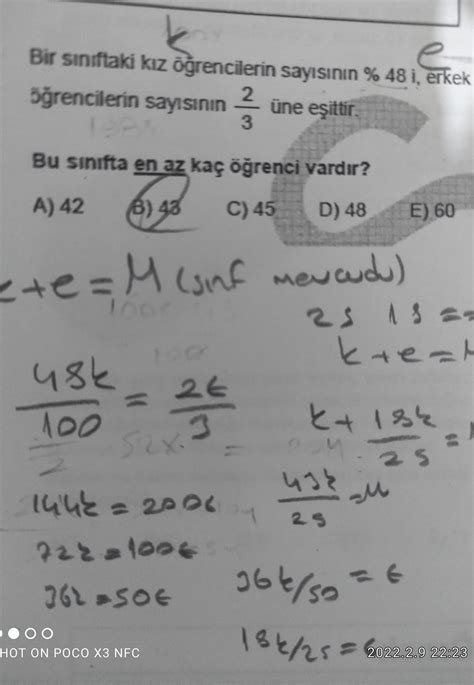 k
e
Bir sınıftaki kız öğrencilerin sayısının % 48 i, erkek
öğrencilerin sayısının 2/3 üne eşittir.
Bu sınıfta en az kaç öğrenci vardır?
A) 42 B) 43 C) 45 D) 48 E) 60
k+e=M (sınıf mevcudu)
25 18
k+e=M
48k/100 = 2e/3
k+18k/25=
144k=200e
43k/25=M
72k=100e
36k=50e
36k/50=e
18k/25=e
SHOT ON POCO X3 NFC
2022.2.9 22:23